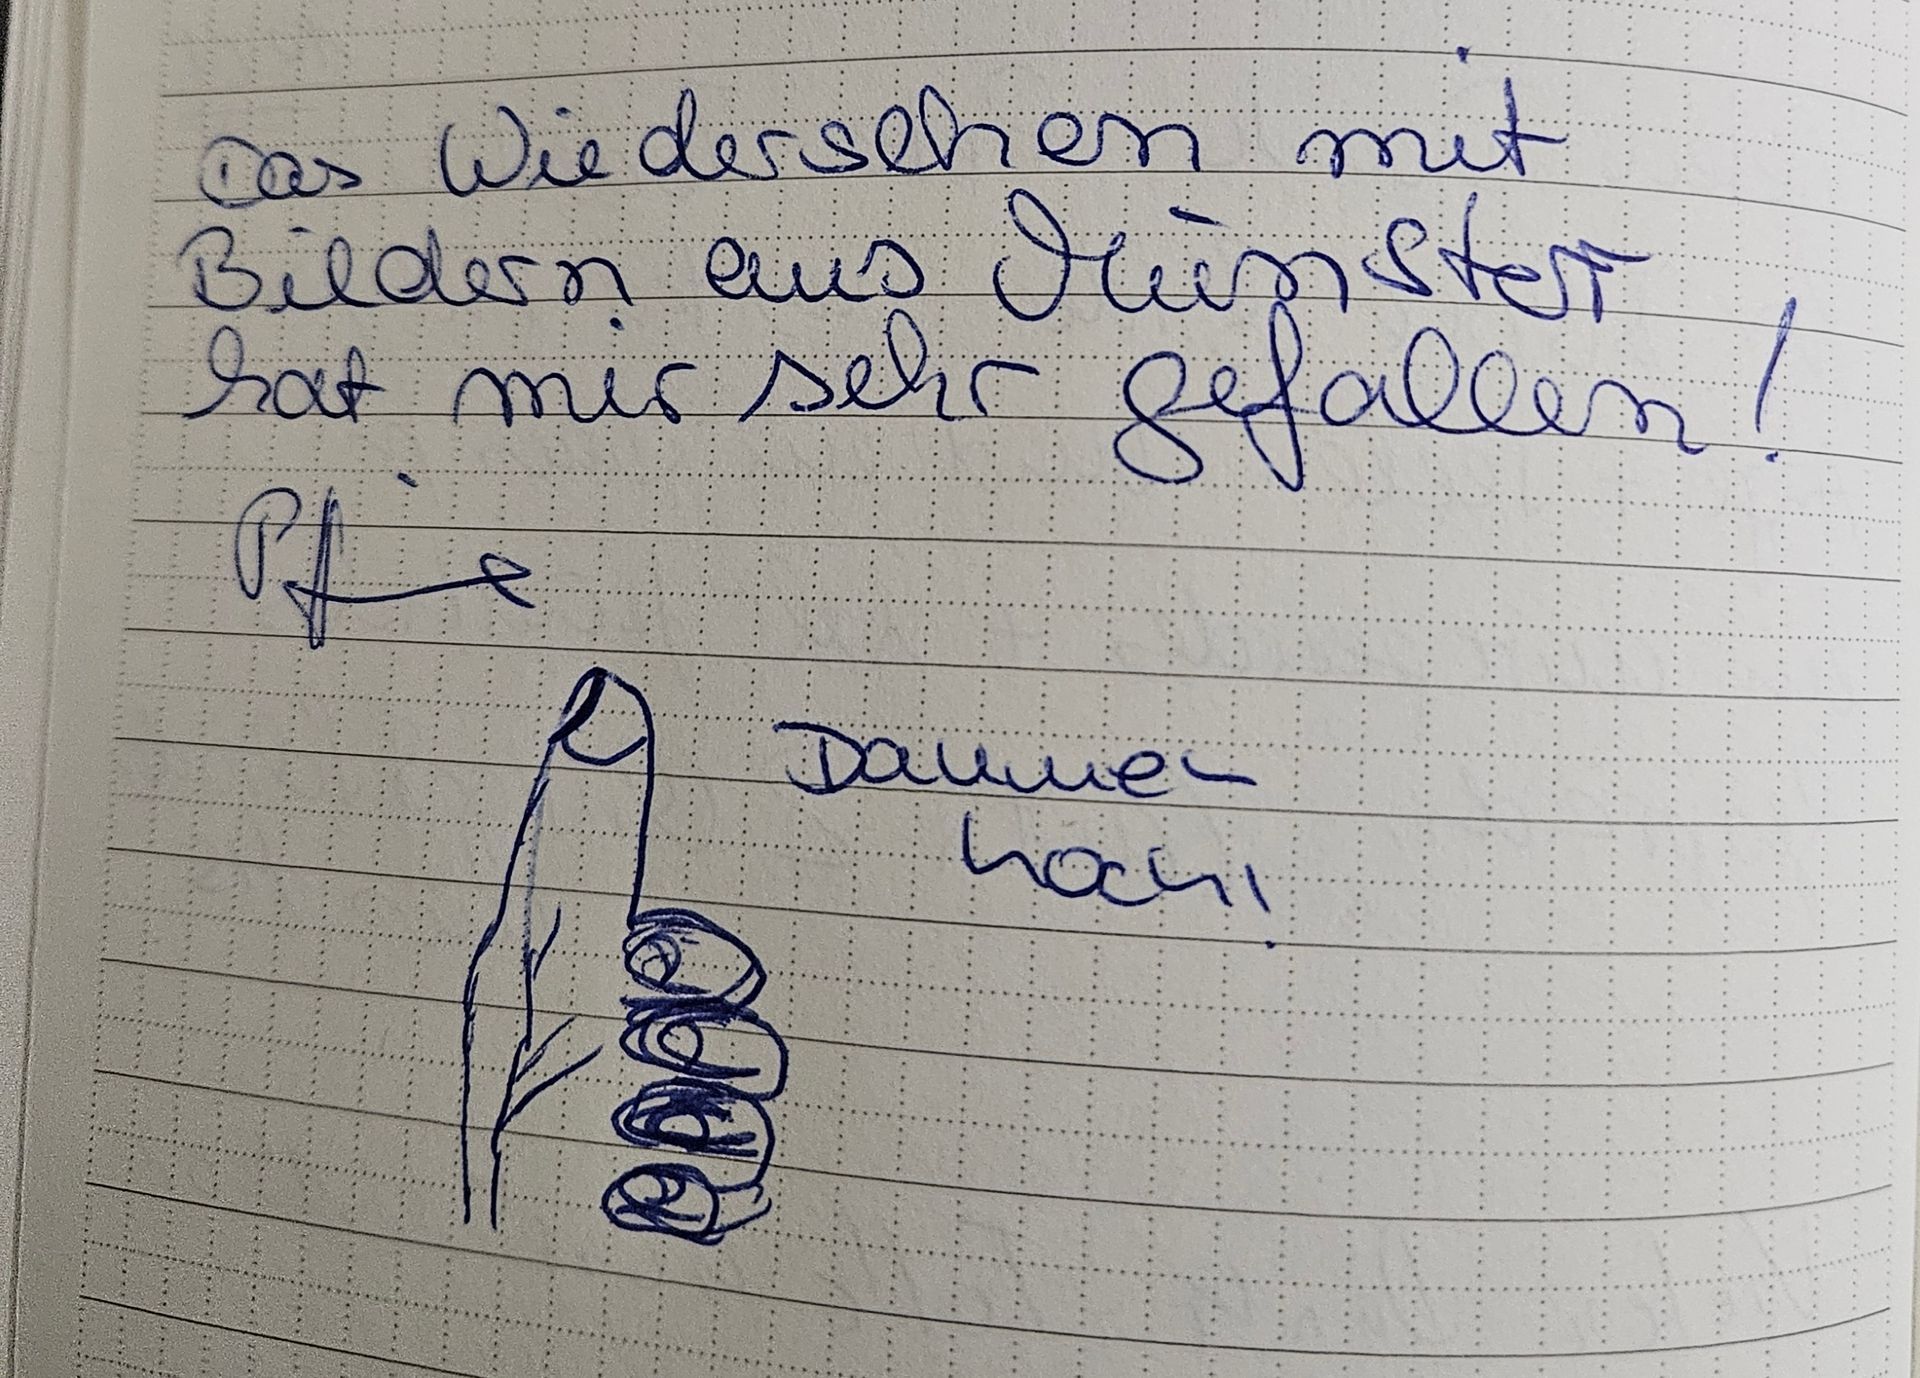 Das Wiedersehen mit
Bildern aus Münster
hat mir sehr gefallen!
Daumen
hoch!